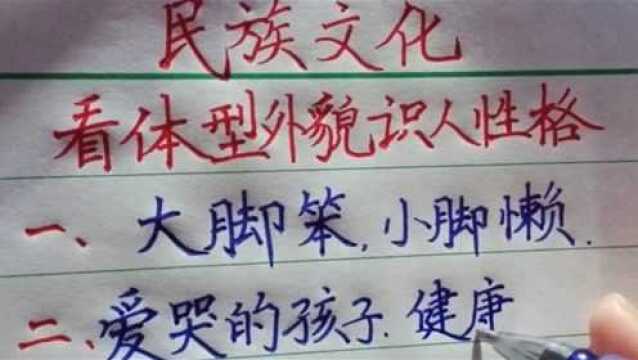 民族文化
看体型外貌识人性格
一、大脚笨,小脚懒.
二、爱哭的孩子.健康